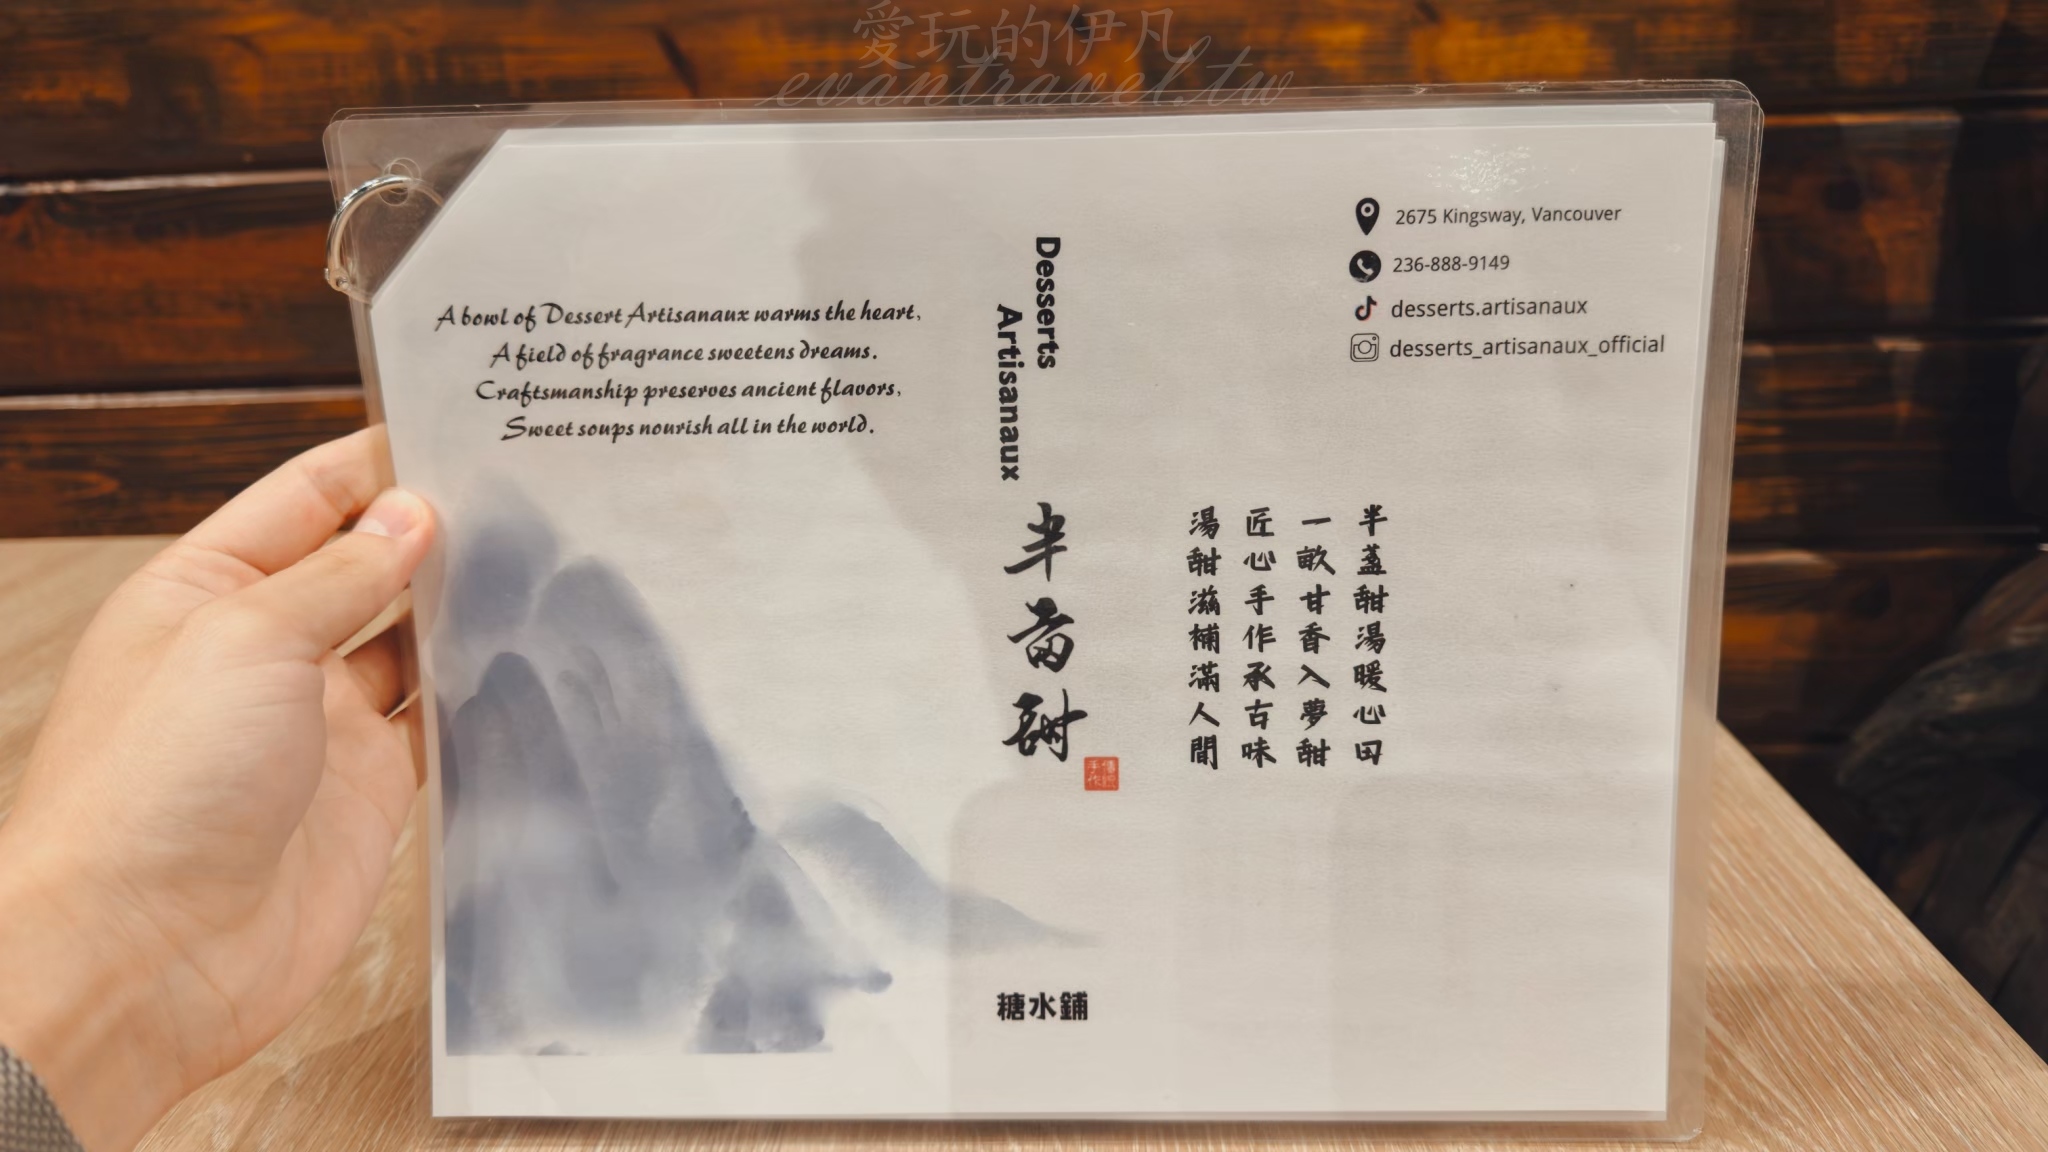 愛玩的伊凡
evantravel.tw
2675 Kingsway, Vancouver
236-888-9149
desserts.artisanaux
desserts_artisanaux_official
A bowl of Dessert Artisanaux warms the heart,
A field of fragrance sweetens dreams.
Craftsmanship preserves ancient flavors,
Sweet soups nourish all in the world.
Desserts
Artisanaux
半畝甜
半盞甜湯暖心田
一畝甘香入夢甜
匠心手作承古味
湯甜滋補滿人間
糖水鋪